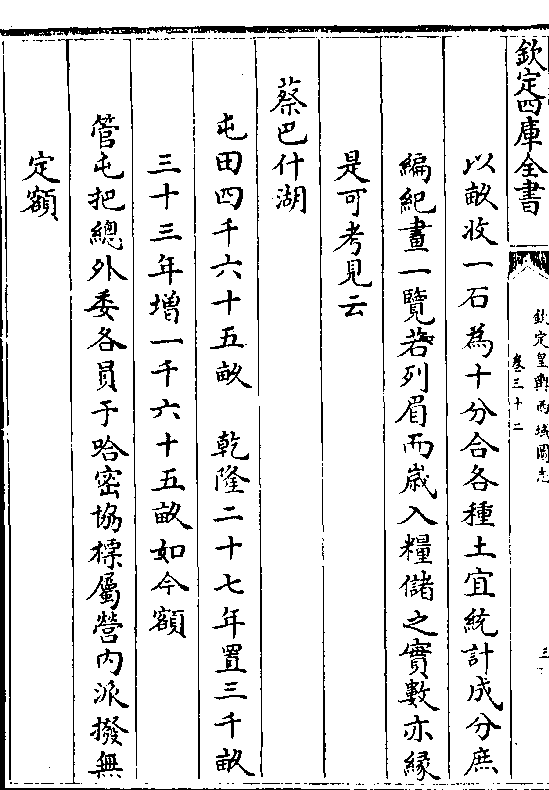 欽定四庫全書
欽定皇輿西域圖志
卷三十二
三
以畝收一石為十分合各種土宜統計成分庶
編紀畫一覽若列眉而歲入糧儲之實數亦緣
是可考見云
蔡巴什湖
屯田四千六十五畝　乾隆二十七年置三千畝
三十三年增一千六十五畝如今額
管屯把總外委各員于哈密協標屬營内派撥無
定額